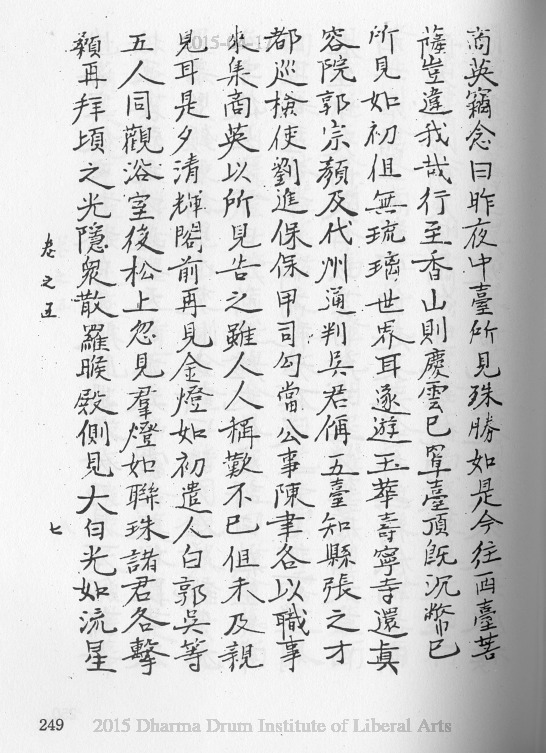 商英竊念曰昨夜中臺所見殊勝如是今往西臺菩
薩豈違我哉行至香山則慶雲已罩臺頂既沉幣已
所見如初但無琉璃世界耳遂遊玉華壽寧寺還真
容院郭宗顏及代州通判吳君偁五臺知縣張之才
都巡檢使劉進保保甲司勾當公事陳聿各以職事
來集商英以所見告之雖人人稱歎不已但未及親
見耳是夕清輝閣前再見金燈如初遣人白郭吳等
五人同觀浴室後松上忽見羣燈如聯珠諸君各擊
顙再拜頃之光隱眾散羅睺殿側見大白光如流星
卷之五
七
249
2015-04-17
2015 Dharma Drum Institute of Liberal Arts